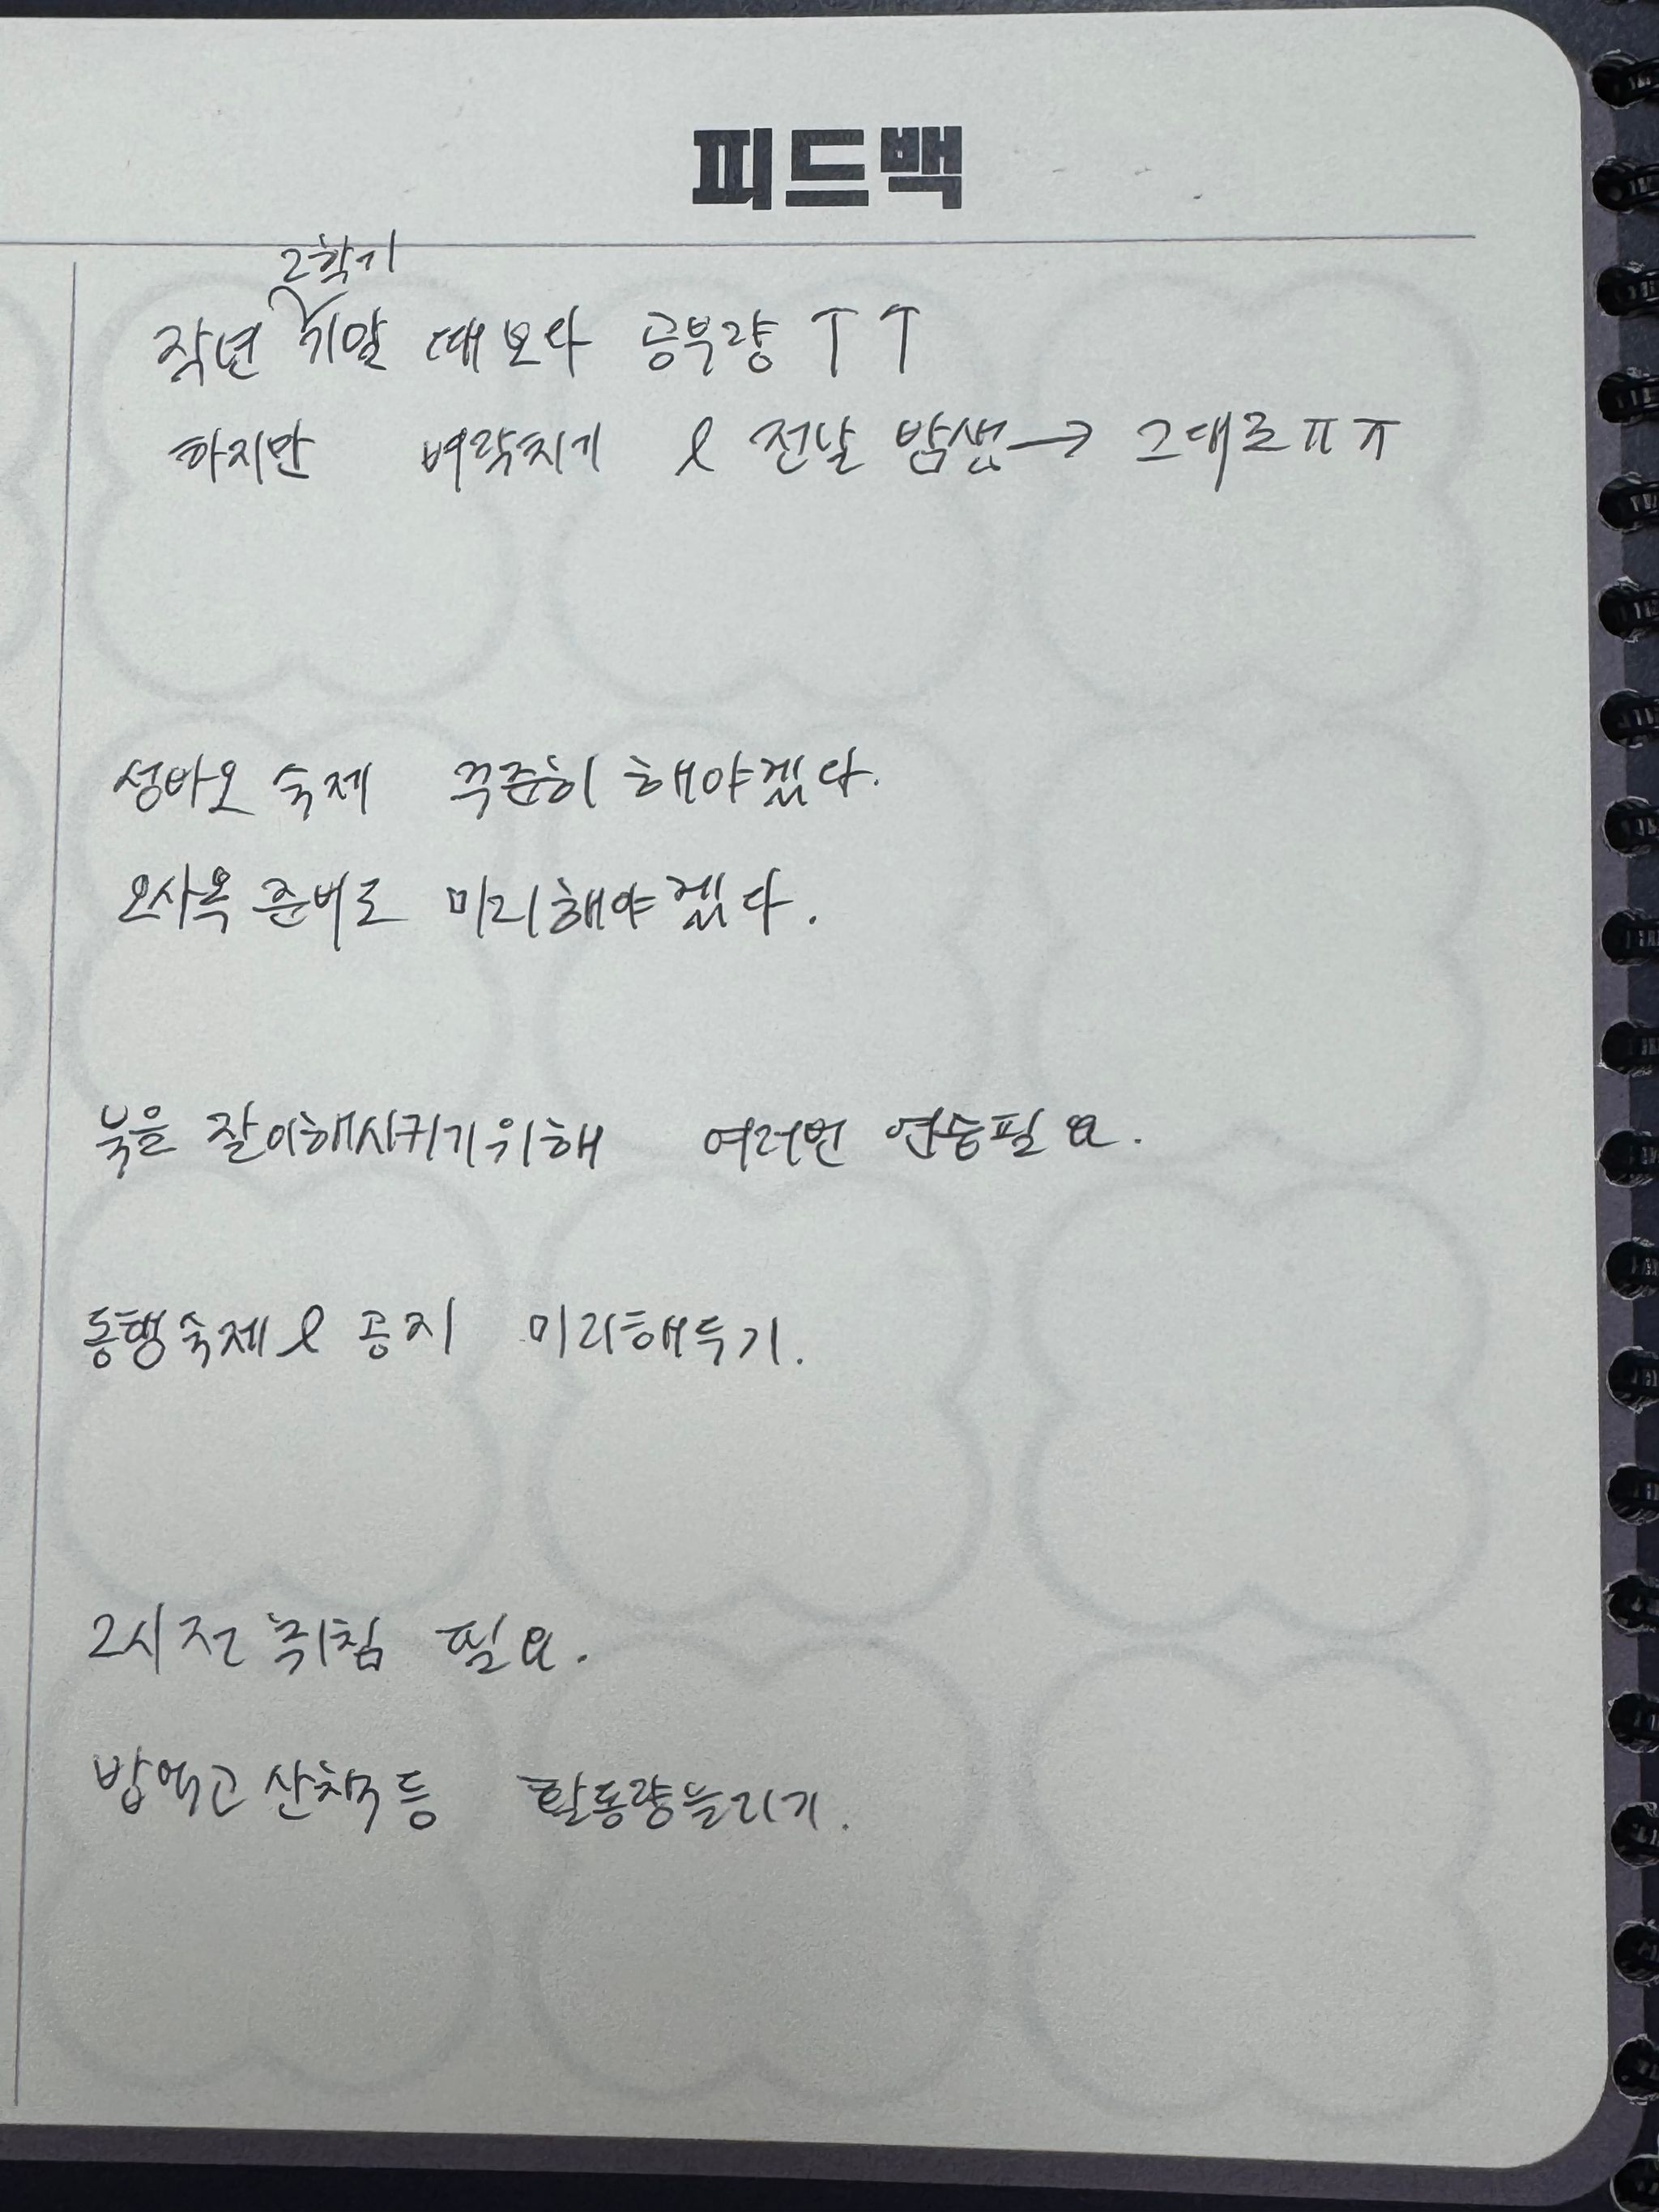 피드백
2학기
작년 기말 때보다 공부량 ↑↑
하지만 벼락치기 & 전날 밤샘→ 그대로ㅠㅠ
성바오 숙제 꾸준히 해야겠다.
오사옥 준비도 미리해야겠다.
북을 잘이해시키기위해 여러번 연습필요.
동행숙제 & 공지 미리해두기.
2시전 취침 필요.
밥먹고 산책 등 활동량늘리기.